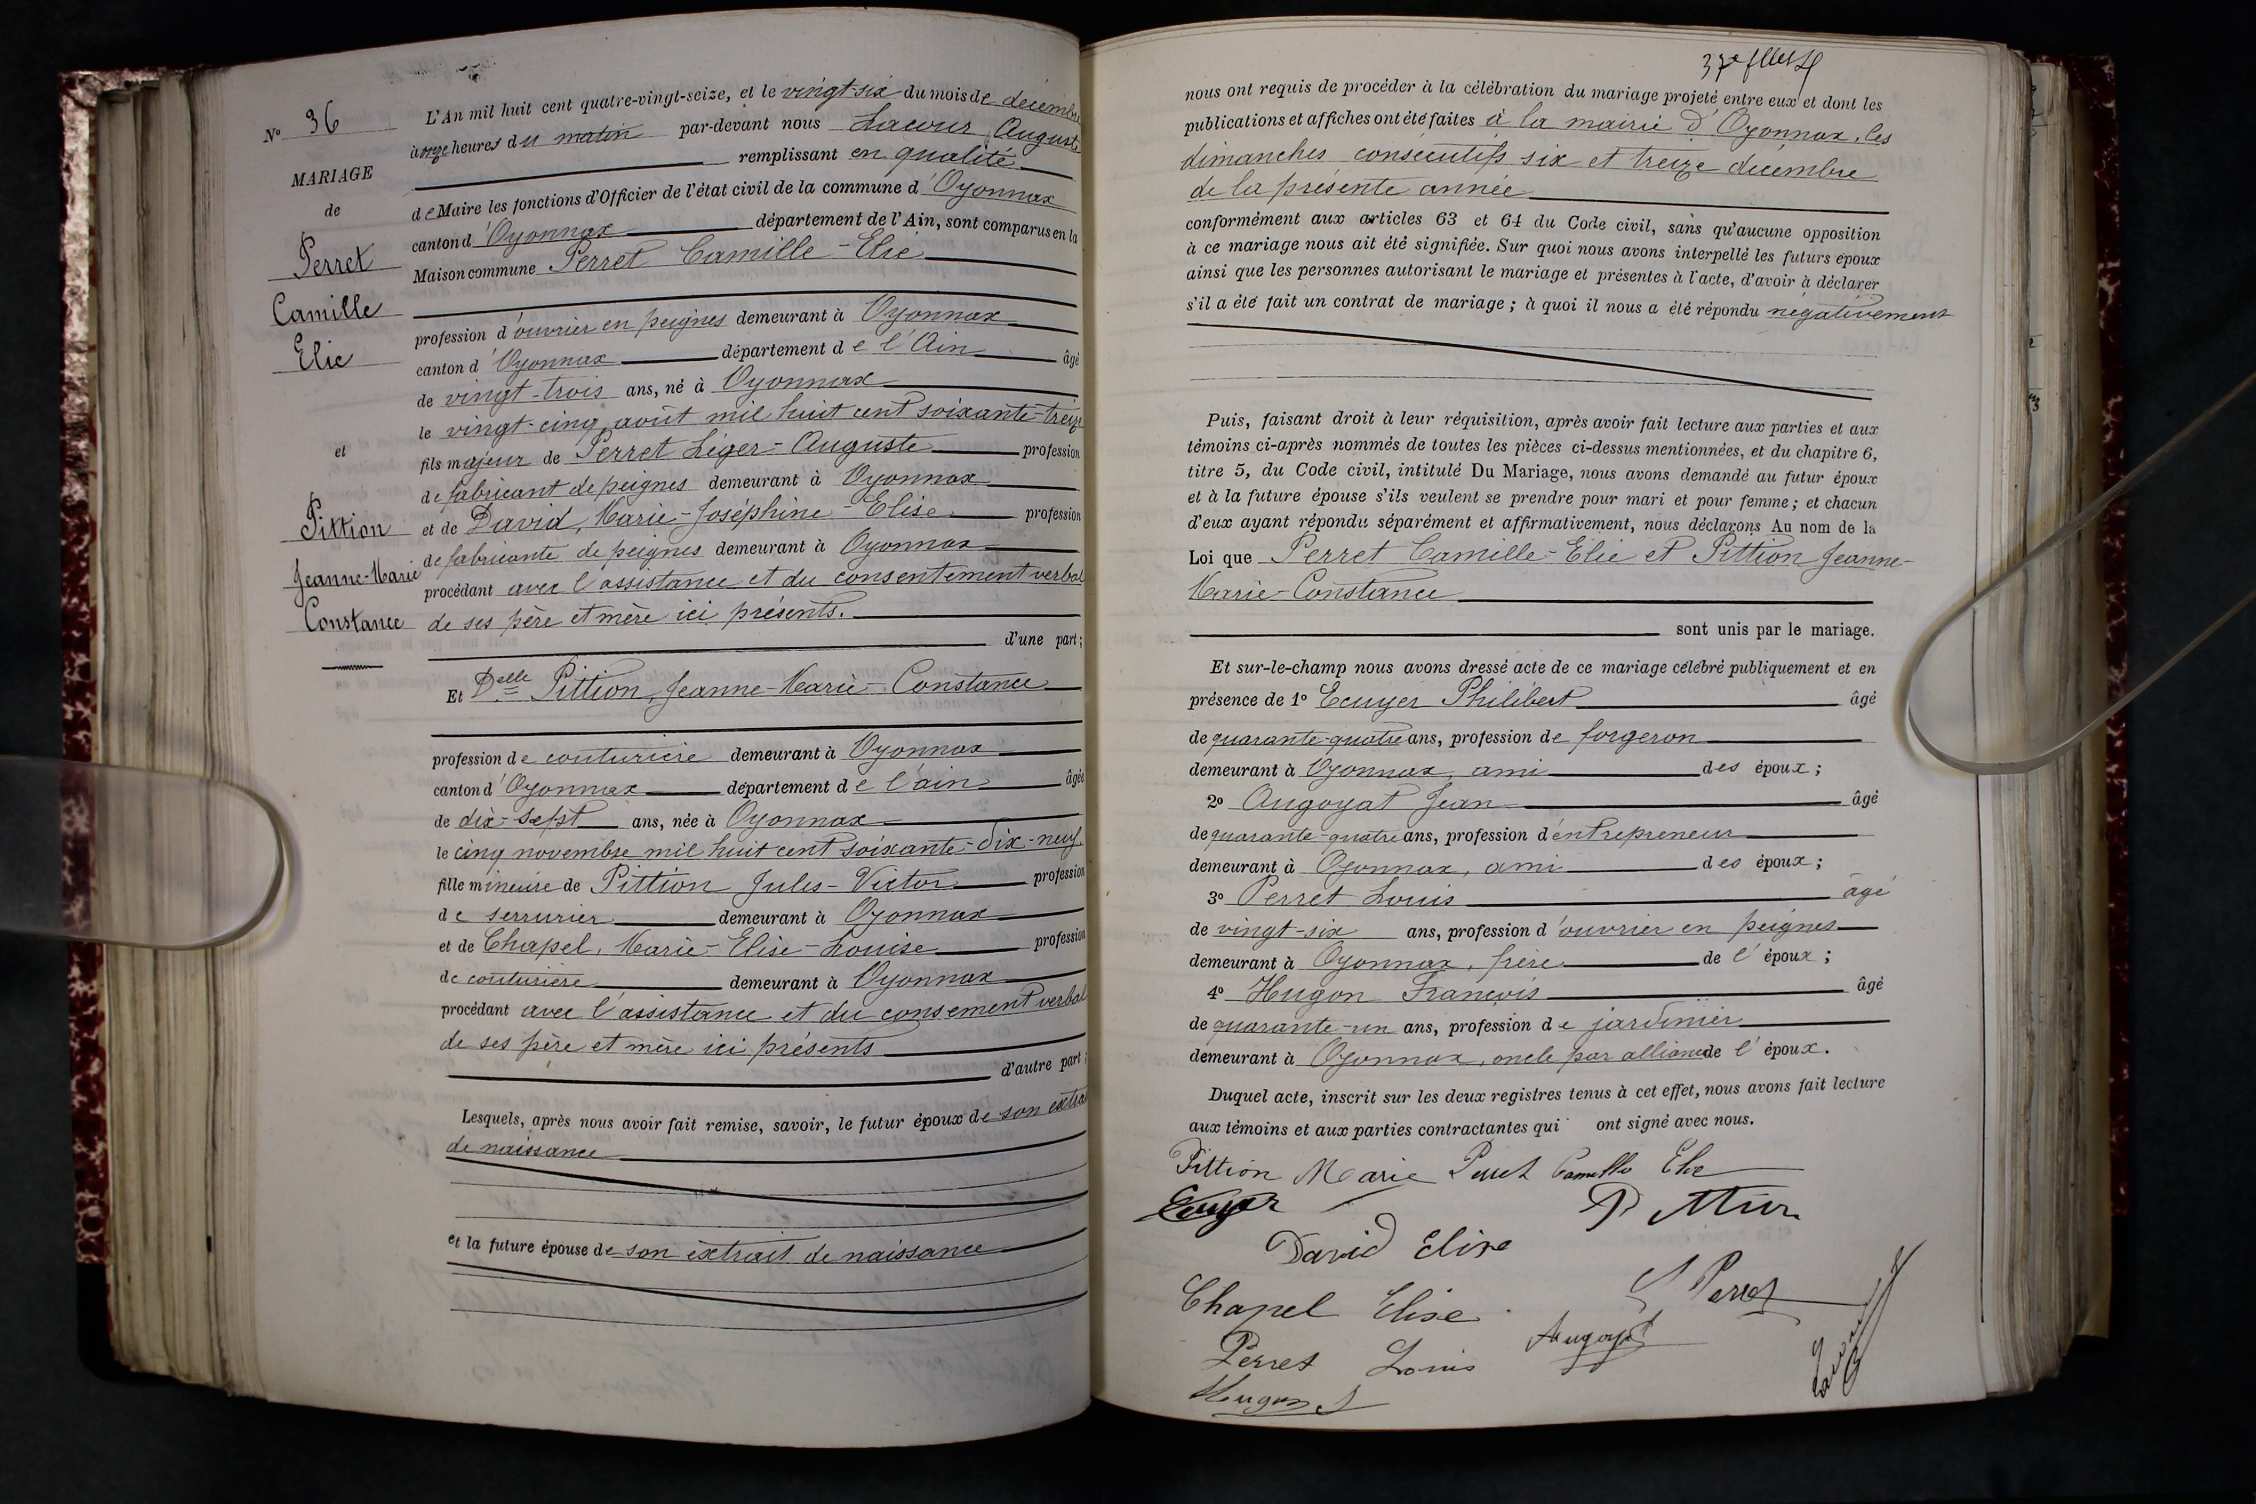 N° 36
MARIAGE
de
Perret
Camille
Elie
et
Pittion
Jeanne-Marie
Constance
L'An mil huit cent quatre-vingt-seize, et le vingt-six du mois de décembre
à onze heures du matin par-devant nous Lacour, Auguste
remplissant en qualité
de Maire les fonctions d'Officier de l'état civil de la commune d'Oyonnax
canton d'Oyonnax département de l'Ain, sont comparus en la
Maison commune Perret Camille-Elie
profession d'ouvrier en peignes demeurant à Oyonnax
canton d'Oyonnax département de l'Ain âgé
de vingt-trois ans, né à Oyonnax
le vingt-cinq août mil huit cent soixante-treize
fils majeur de Perret Léger-Auguste profession
de fabricant de peignes demeurant à Oyonnax
et de David, Marie-Joséphine-Elise profession
de fabricante de peignes demeurant à Oyonnax
procédant avec l'assistance et du consentement verbal
de ses père et mère ici présents.
d'une part;
Et Delle Pittion, Jeanne-Marie-Constance
profession de couturière demeurant à Oyonnax
canton d'Oyonnax département de l'ain âgée
de dix-sept ans, née à Oyonnax
le cinq novembre mil huit cent soixante-dix-neuf
fille mineure de Pittion Jules-Victor profession
de serrurier demeurant à Oyonnax
et de Chapel, Marie-Elise-Louise profession
de couturière demeurant à Oyonnax
procédant avec l'assistance et du consement verbal
de ses père et mère ici présents
d'autre part;
Lesquels, après nous avoir fait remise, savoir, le futur époux de son extrait
de naissance
et la future épouse de son extrait de naissance
nous ont requis de procéder à la célébration du mariage projeté entre eux et dont les
publications et affiches ont été faites à la mairie d'Oyonnax, les
dimanches consécutifs six et treize décembre
de la présente année
conformément aux articles 63 et 64 du Code civil, sans qu'aucune opposition
à ce mariage nous ait été signifiée. Sur quoi nous avons interpellé les futurs époux
ainsi que les personnes autorisant le mariage et présentes à l'acte, d'avoir à déclarer
s'il a été fait un contrat de mariage; à quoi il nous a été répondu négativement
Puis, faisant droit à leur réquisition, après avoir fait lecture aux parties et aux
témoins ci-après nommés de toutes les pièces ci-dessus mentionnées, et du chapitre 6,
titre 5, du Code civil, intitulé Du Mariage, nous avons demandé au futur époux
et à la future épouse s'ils veulent se prendre pour mari et pour femme; et chacun
d'eux ayant répondu séparément et affirmativement, nous déclarons Au nom de la
Loi que Perret Camille-Elie et Pittion Jeanne-
Marie-Constance
sont unis par le mariage.
Et sur-le-champ nous avons dressé acte de ce mariage célébré publiquement et en
présence de 1° Ecuyer Philibert âgé
de quarante-quatre ans, profession de forgeron
demeurant à Oyonnax, ami des époux;
2° Augoyat Jean âgé
de quarante-quatre ans, profession d'entrepreneur
demeurant à Oyonnax, ami des époux;
3° Perret Louis âgé
de vingt-six ans, profession d'ouvrier en peignes
demeurant à Oyonnax, frère de l'époux;
4° Hugon François âgé
de quarante-un ans, profession de jardinier
demeurant à Oyonnax, oncle par alliance de l'époux.
Duquel acte, inscrit sur les deux registres tenus à cet effet, nous avons fait lecture
aux témoins et aux parties contractantes qui ont signé avec nous.
Pittion Marie Perret Camille Elie
Ecuyer Pittion
David Elise
Chapel Elise Perret
Perret Louis Augoyat
Hugon Lacour